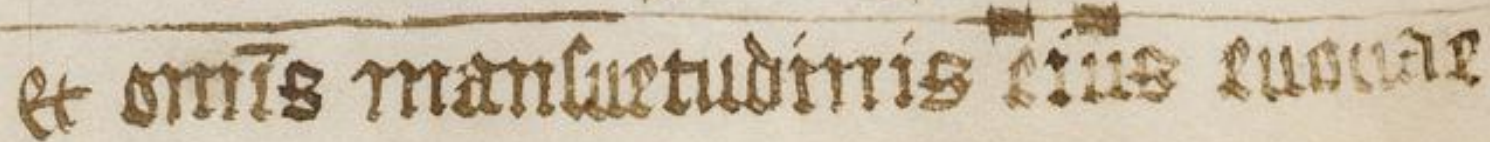 et om̅is mansuetudinis eius euouae